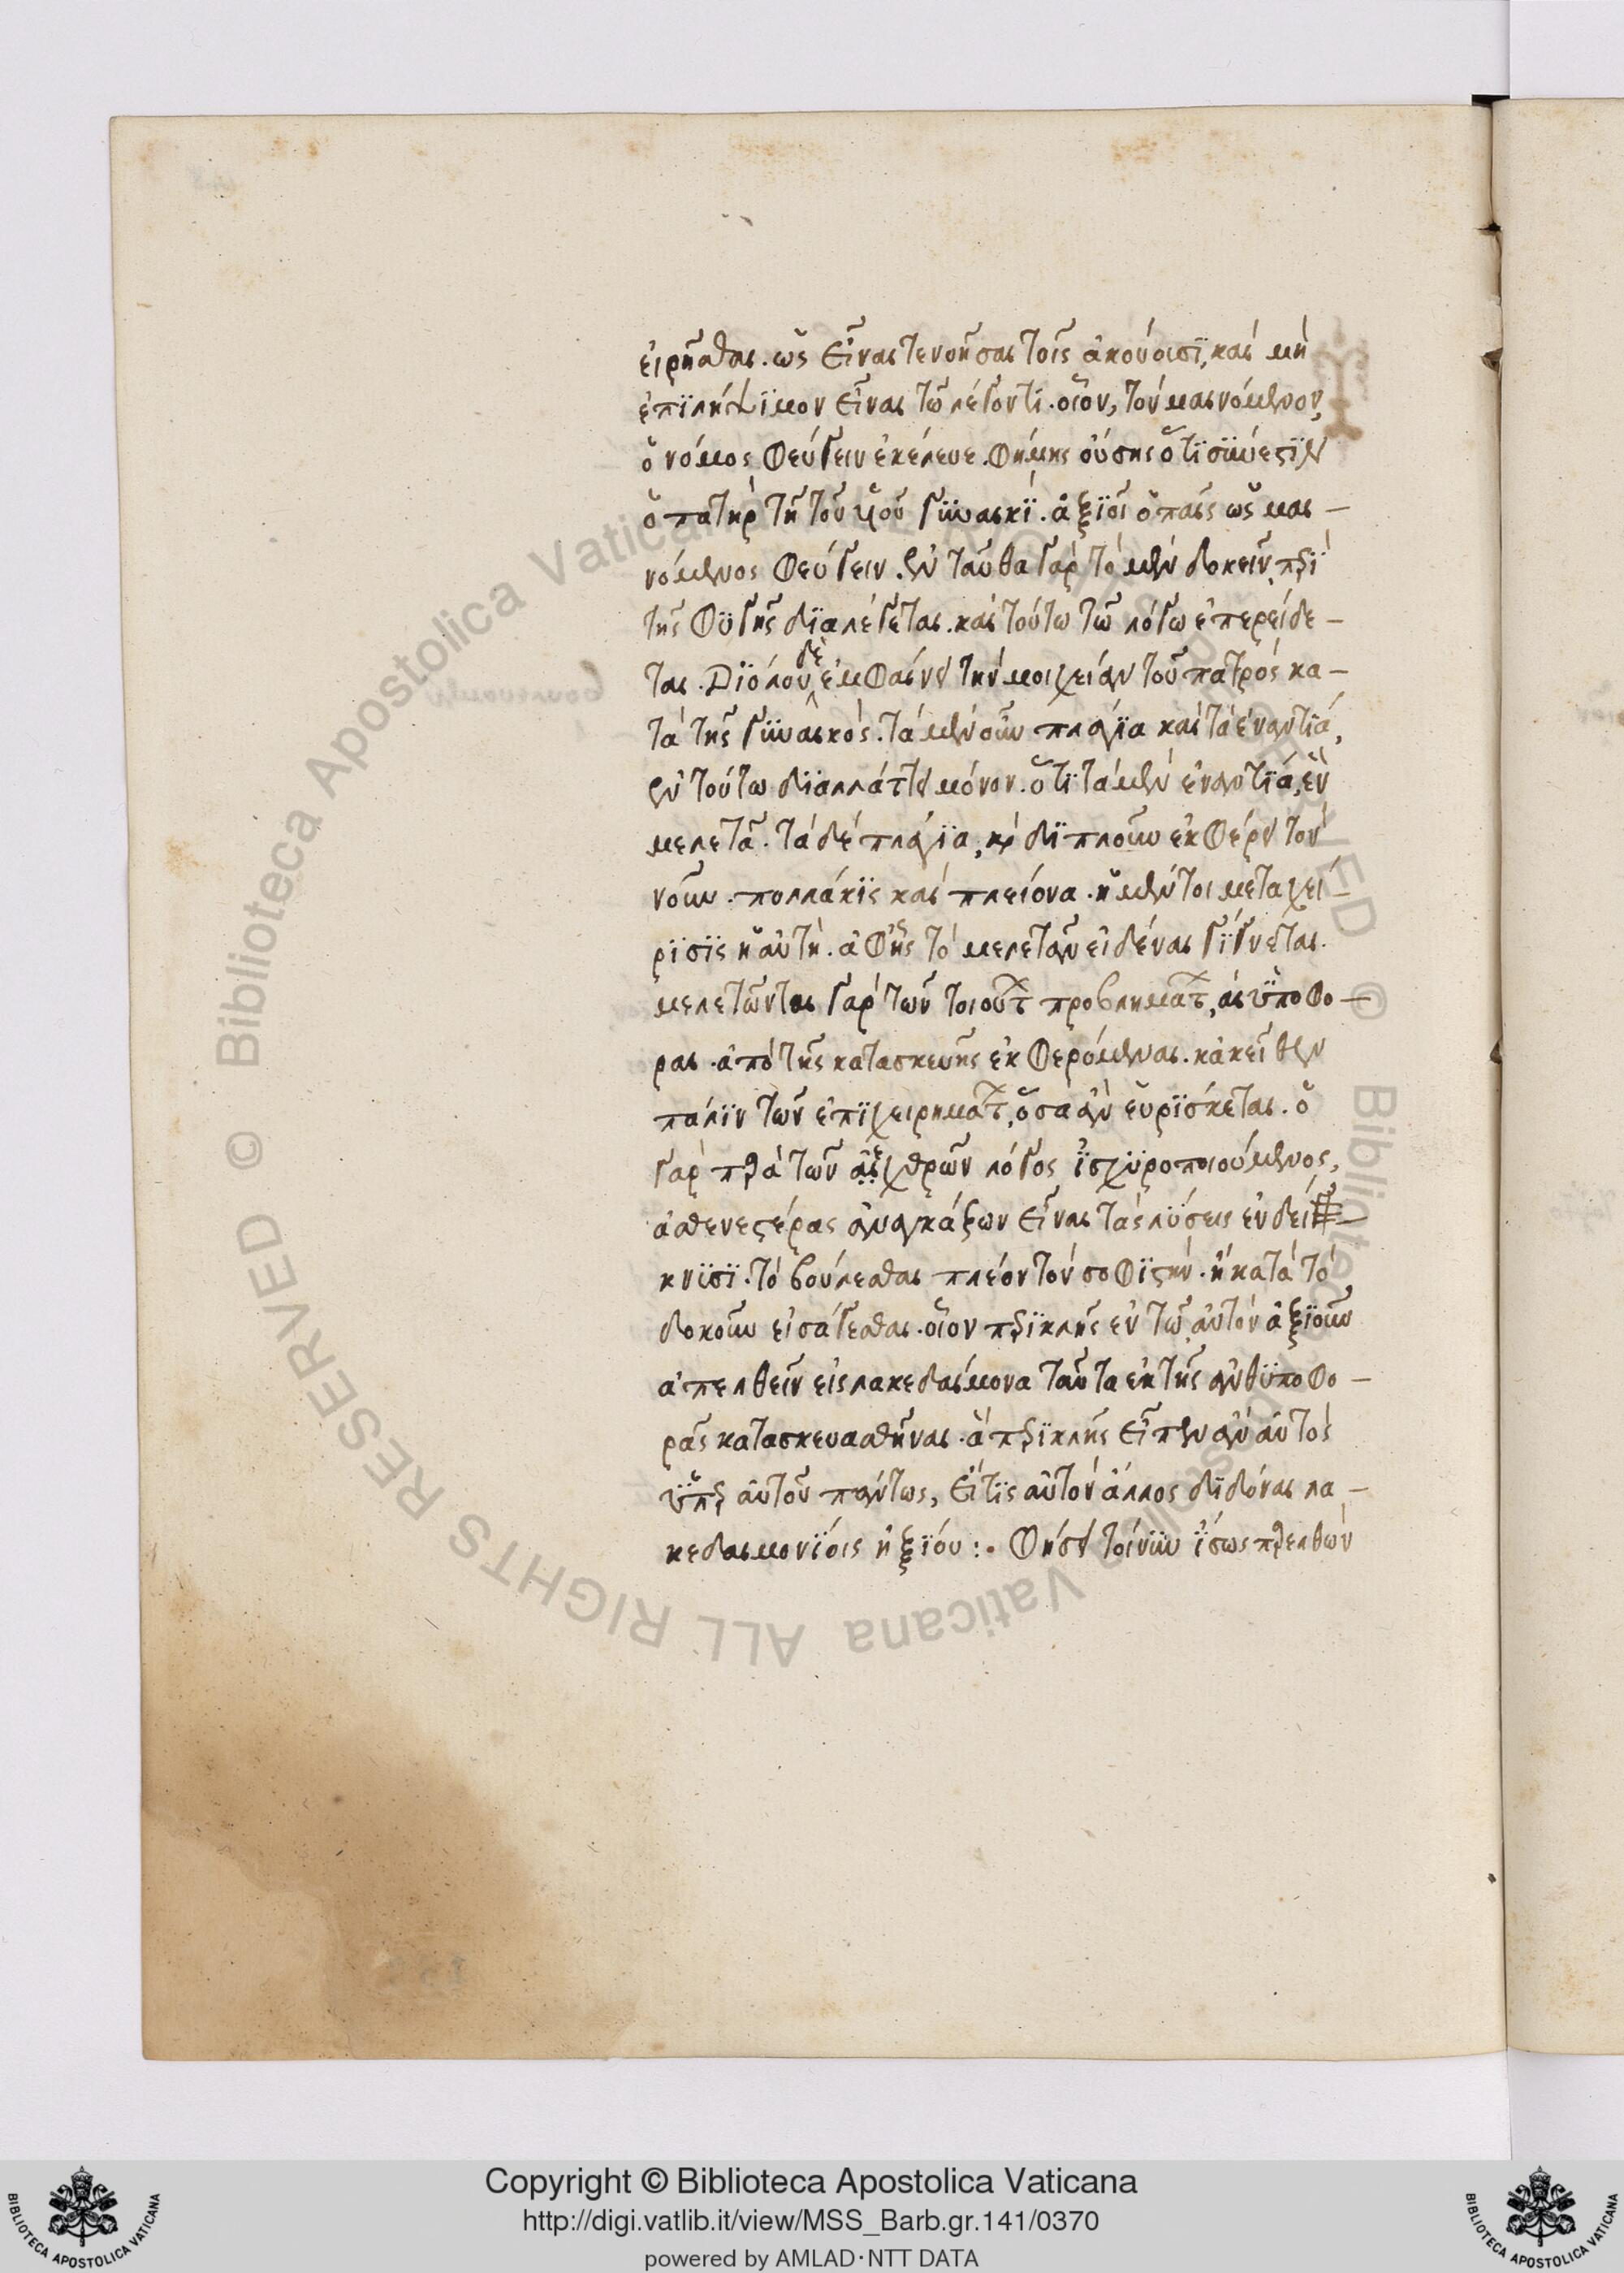 εἰρῆσθαι. ὡς εἶναί τε νοῆσαι τοῖς ἀκούουσϊ, καὶ μὴ
ἐπϊλήψϊμον εἶναι τῶ λέγοντι. οἷον, τὸν μαινόμενον,
ὁ νόμος φεύγειν ἐκέλευε. φήμης οὔσης ὅτϊ σϋνεστϊν
ὁ πατὴρ τῆ τοῦ υἱοῦ γϋναικϊ. ἀξϊοῖ ὁ παῖς ὡς μαι–
νόμενος φεύγειν. ἐνταῦθα γὰρ τὸ μὲν δοκεῖν, περὶ
τῆς φϋγῆς δϊαλέγεται. καὶ τούτω τῶ λόγω ἐπερείδε–
ται. δϊόλου δὲ ἐμφαίνει τὴν μοιχείαν τοῦ πατρὸς κα–
τὰ τῆς γϋναικός. τὰ μὲν οὖν πλάγϊα καὶ τὰ ἐναντϊά,
ἐν τούτω δϊαλλάττει μόνον. ὅτϊ τὰ μὲν ἐναντϊά, ἓν
μελετᾶ. τὰ δὲ πλάγϊα, καὶ δϊπλοῦν ἐκφέρει τὸν
νοῦν. πολλάκϊς καὶ πλείονα. ἡ μέντοι μεταχεί–
ρϊσϊς ἡ αὐτή. ἀφ' ἧς τὸ μελετᾶν εἰδέναι γίγνεται.
μελετῶνται γὰρ τῶν τοιούτ προβλημάτ, αἱ ὑποφο–
ραι. ἀπὸ τῆς κατασκευῆς ἐκφερόμεναι. κἀκεῖθεν
πάλϊν τῶν ἐπϊχειρημάτ, ὅσα ἂν εὑρϊσκεται. ὁ
γὰρ παρὰ τῶν ἐχθρῶν λόγος ἰσχϋροποιούμενος,
ἀσθενεστέρας ἀναγκάζων εἶναι τὰς λϋσεις ἐνδεί–
κνϋσϊ. τὸ βούλεσθαι πλέον τὸν σοφϊστήν. ἢ κατὰ τὸ
δοκοῦν εἰσάγεσθαι. οἷον περϊκλῆς ἐν τῶ αὐτὸν ἀξϊοῦν
ἀπελθεῖν εἰς λακεδαίμονα ταῦτα ἐκ τῆς ἀνθϋποφο–
ρᾶς κατασκευασθῆναι. ἃ περϊκλῆς εἶπεν ἂν αὐτὸς
ὑπὲρ αὐτοῦ πάντως, εἴ τϊς αὐτὸν ἄλλος δϊδόναι λα–
κεδαιμονϊοις ἠξϊου :. φησὶ τοίνϋν ἴσως παρελθὼν
Copyright © Biblioteca Apostolica Vaticana
http://digi.vatlib.it/view/MSS_Barb.gr.141/0370
powered by AMLAD·NTT DATA
BIBLIOTECA APOSTOLICA VATICANA
BIBLIOTECA APOSTOLICA VATICANA
© Biblioteca Apostolica Vaticana ALL RIGHTS RESERVED © Biblioteca Apostolica Vaticana ALL RIGHTS RESERVED